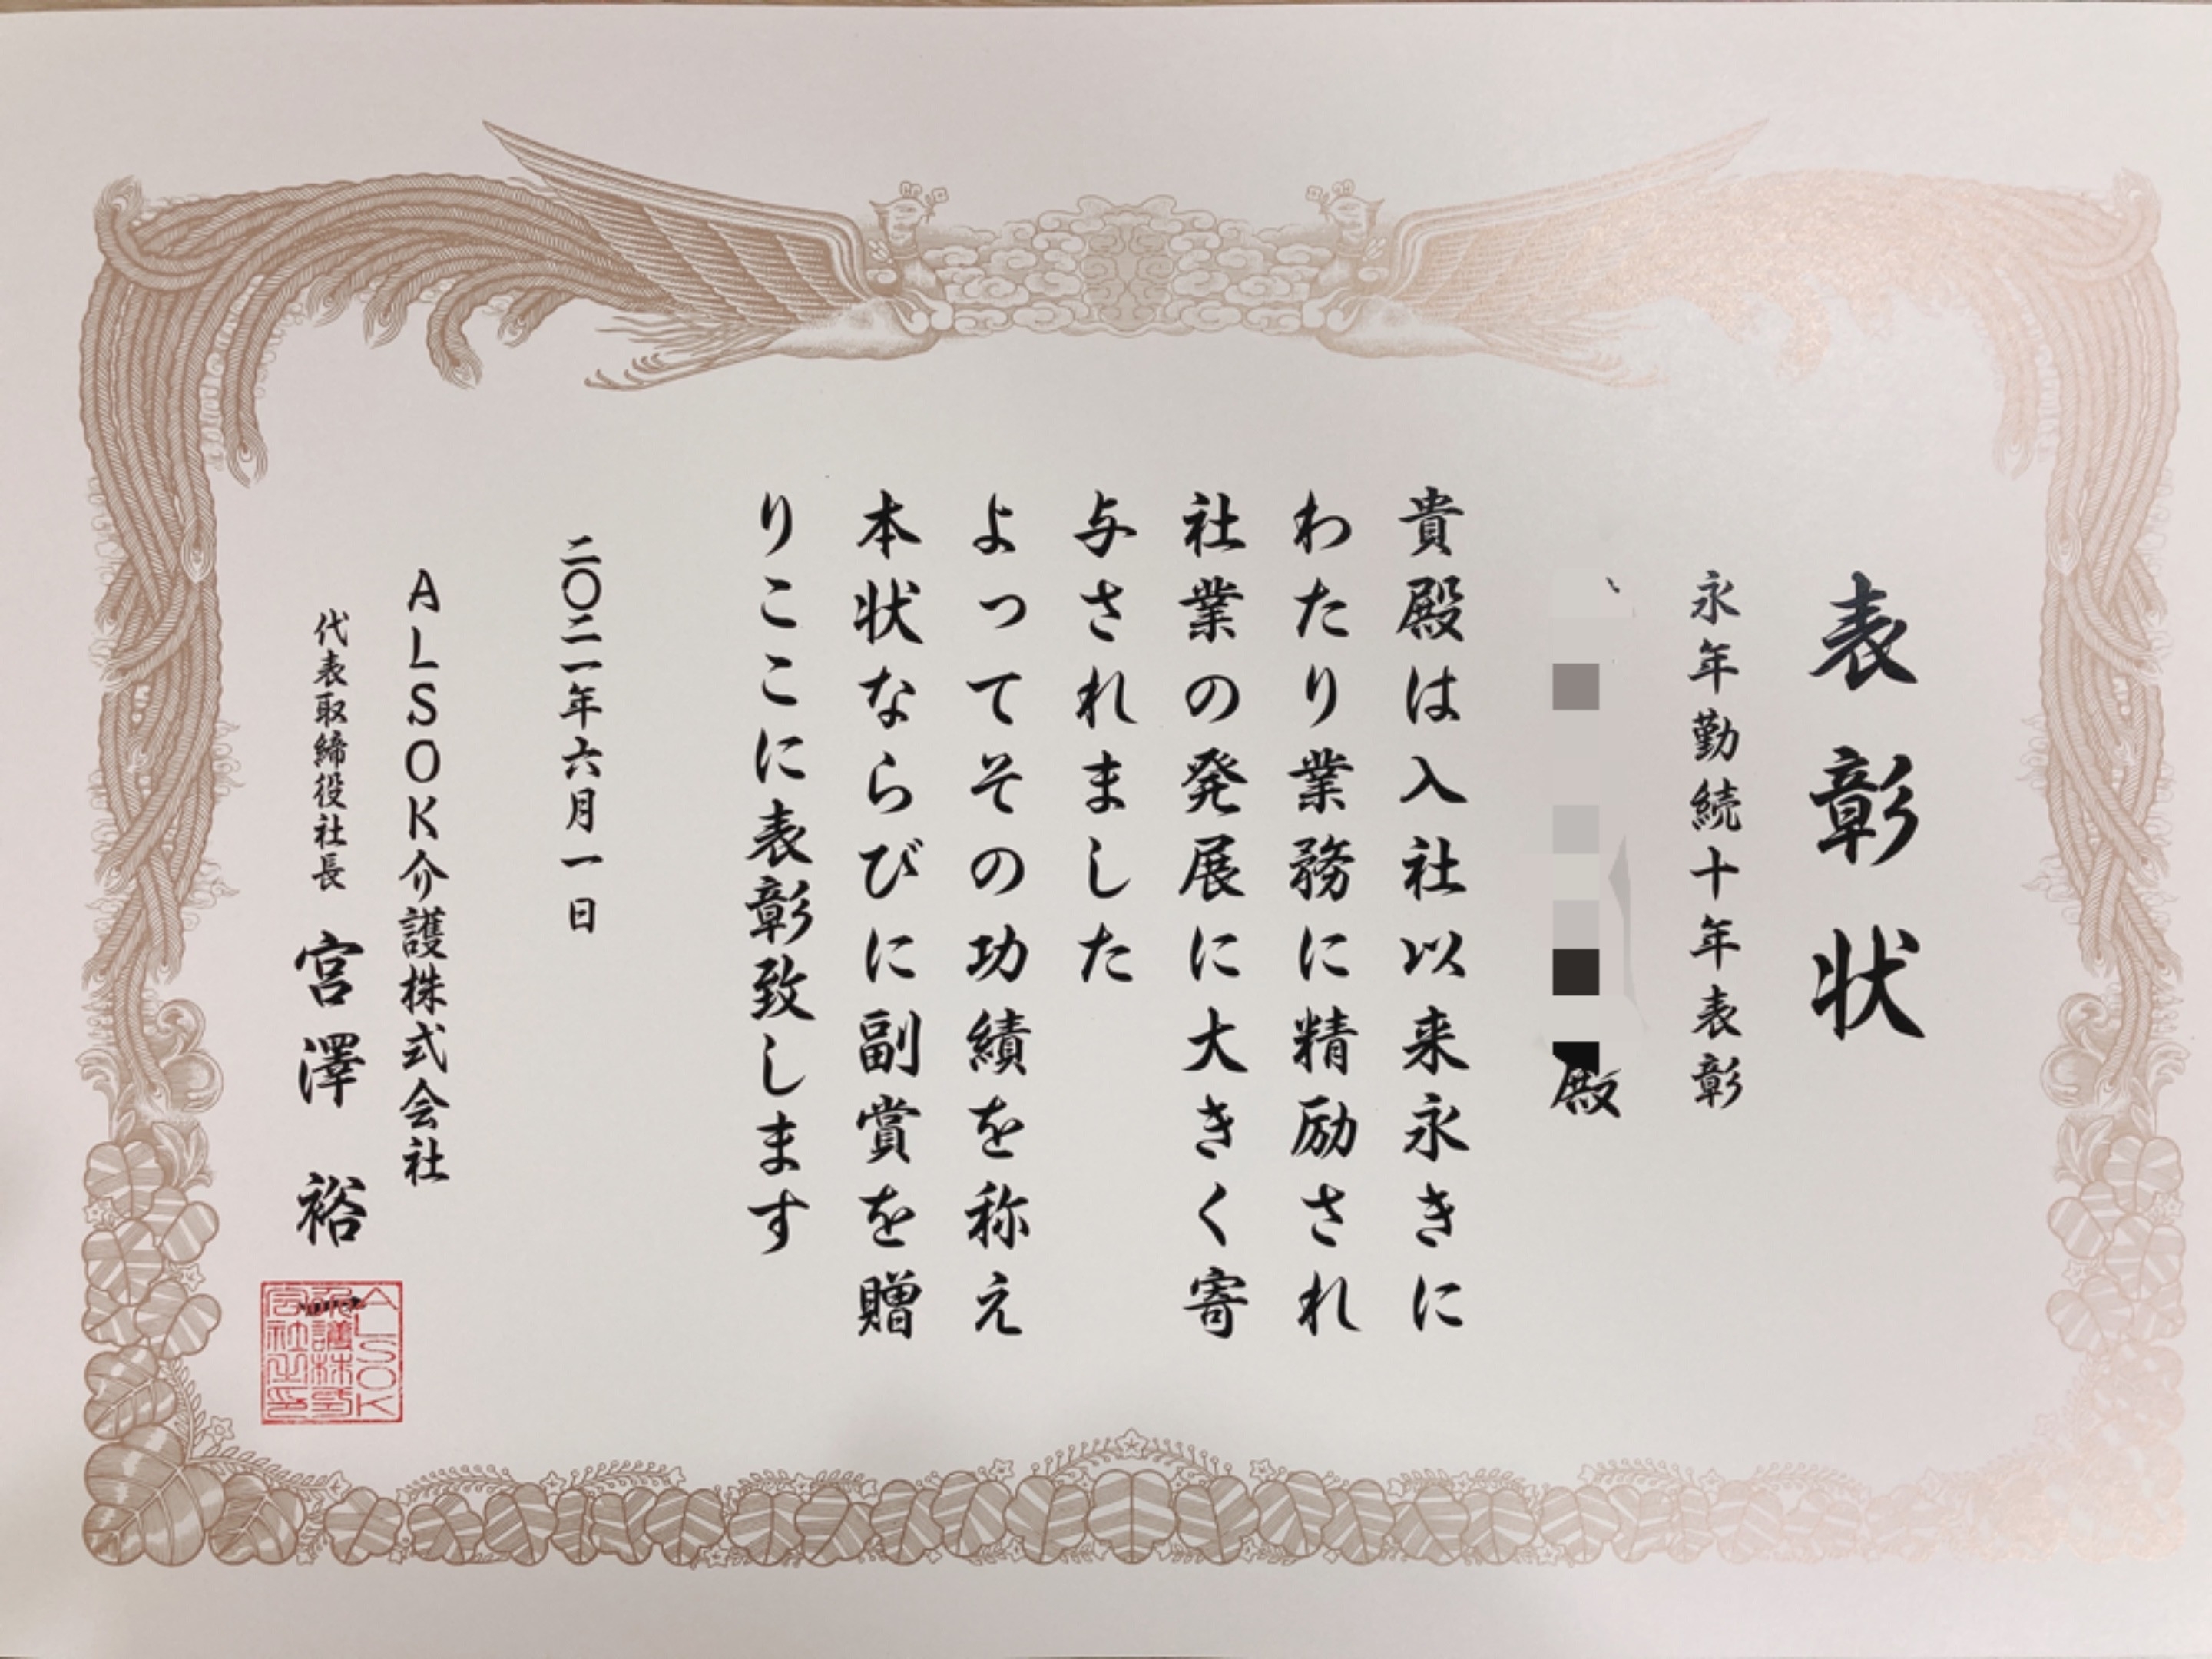 表彰状
永年勤続十年表彰
殿
貴殿は入社以来永きに
わたり業務に精励され
社業の発展に大きく寄
与されました
よってその功績を称え
本状ならびに副賞を贈
りここに表彰致します
二〇二一年六月一日
ALSOK介護株式会社
代表取締役社長 宮澤裕一
ALSOK
介護株式
会社之印